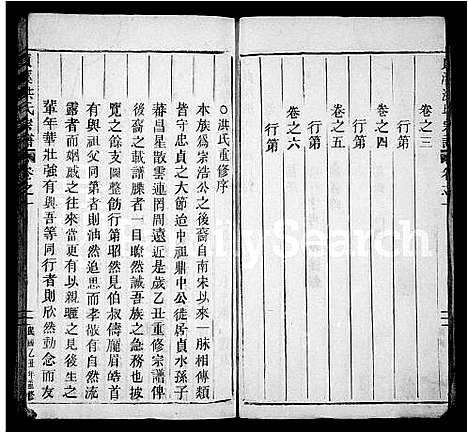 卷之三
行第
卷之四
行第
卷之五
行第
卷之六
行第
○洪氏重修序
本族為宗浩公之後裔自南宋以來一脉相傳類
皆守忠貞之大節迨中祖鼎中公徒居貞水孫子
蕃昌星散雲連罔周遠近是歲乙丑重修宗譜俾
後裔之載譜牒者一目瞭然誠吾族之急務也披
覽之餘支圖整飭行第昭然見伯叔儔龐眉皓首
有與祖父同第者則油然追思而孝敬有自然流
露者而姻戚之往來當更有以親暱之見後生之
輩年華壯強有與吾等同行者則欣然動念而友
洪氏宗譜
卷之一
民國乙丑年重修
Search